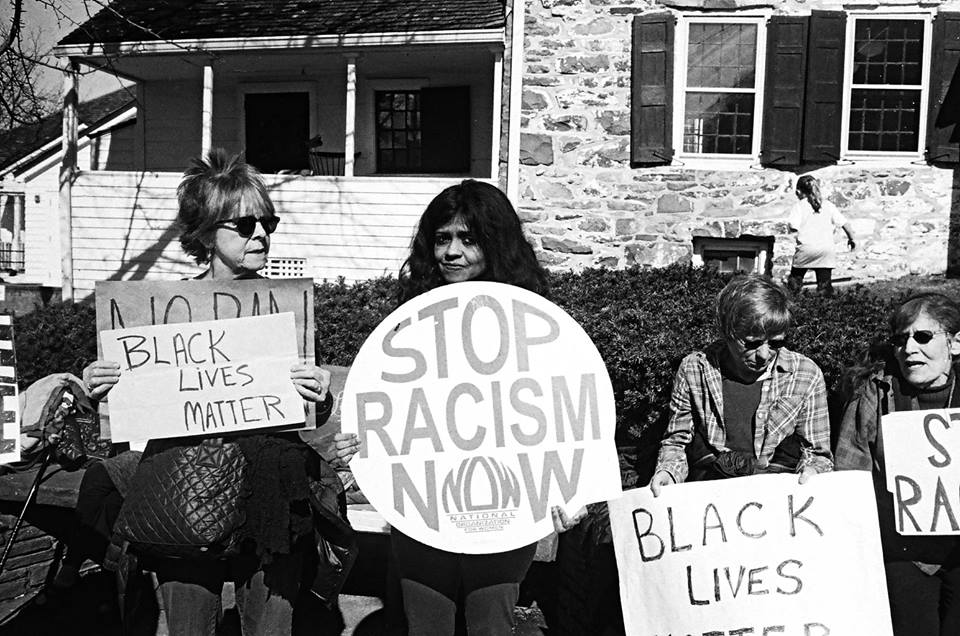 NO
BLACK
LIVES
MATTER
STOP
RACISM
NOW
NOW
NATIONAL
ORGANIZATION
FOR WOMEN
BLACK
LIVES
MATTER
ST
RA